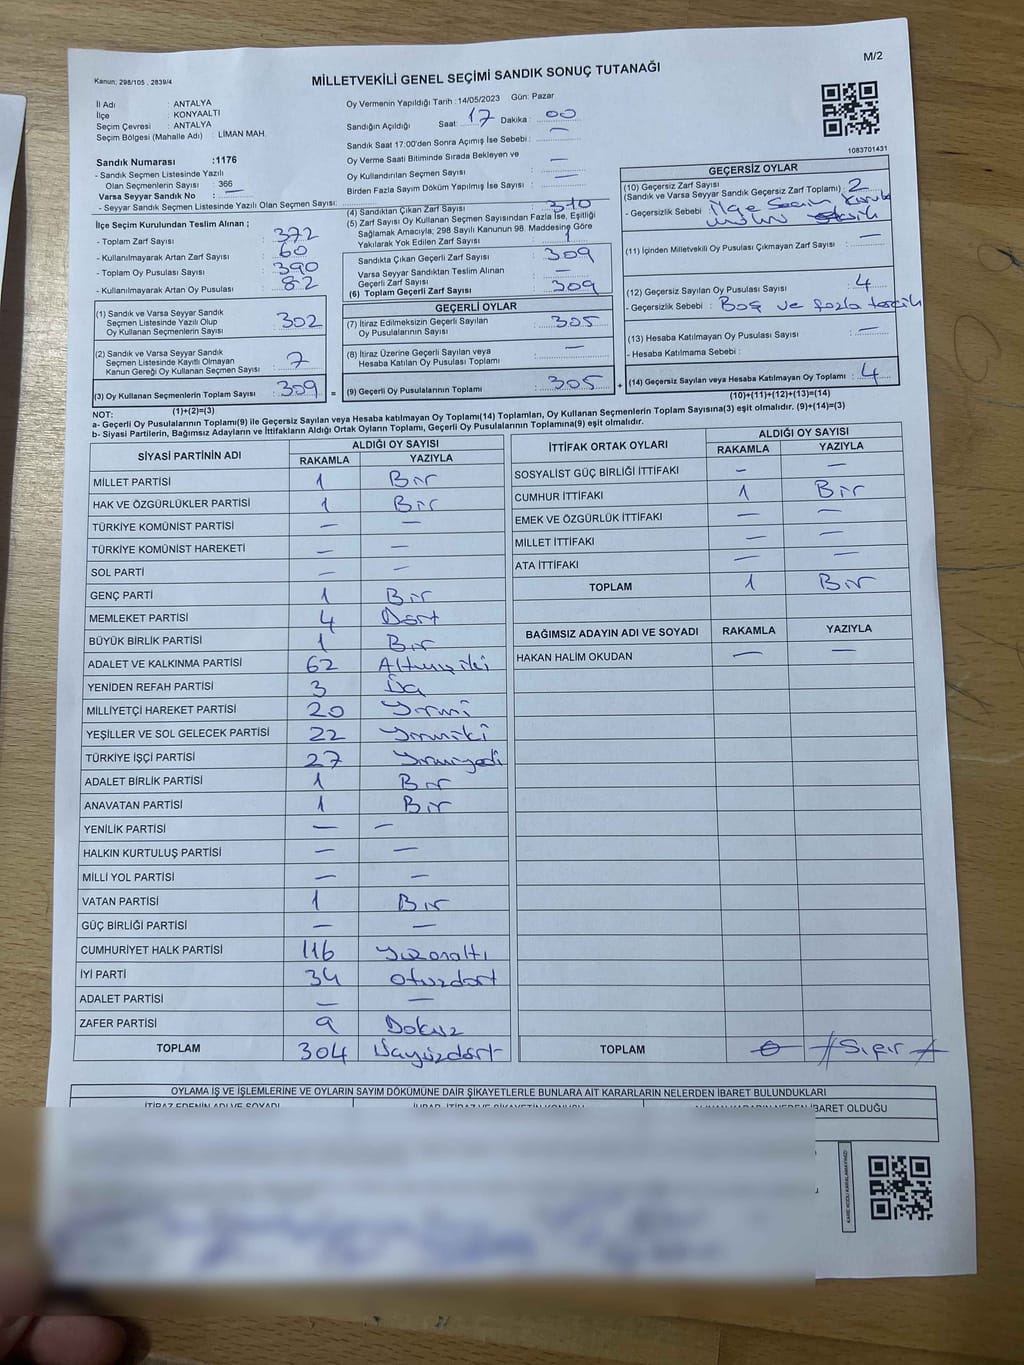 M/2
Kanun; 298/105 , 2839/4
MİLLETVEKİLİ GENEL SEÇİMİ SANDIK SONUÇ TUTANAĞI
İl Adı : ANTALYA
İlçe : KONYAALTI
Seçim Çevresi : ANTALYA
Seçim Bölgesi (Mahalle Adı) : LİMAN MAH.
Sandık Numarası :1176
- Sandık Seçmen Listesinde Yazılı
Olan Seçmenlerin Sayısı : 366
Varsa Seyyar Sandık No : —
- Seyyar Sandık Seçmen Listesinde Yazılı Olan Seçmen Sayısı:
Oy Vermenin Yapıldığı Tarih :14/05/2023 Gün: Pazar
Sandığın Açıldığı Saat: 17 Dakika : 00
Sandık Saat 17:00'den Sonra Açımış İse Sebebi : —
Oy Verme Saati Bitiminde Sırada Bekleyen ve
Oy Kullandırılan Seçmen Sayısı : —
Birden Fazla Sayım Döküm Yapılmış İse Sayısı : —
1083701431
İlçe Seçim Kurulundan Teslim Alınan ;
- Toplam Zarf Sayısı : 372
- Kullanılmayarak Artan Zarf Sayısı : 60
- Toplam Oy Pusulası Sayısı : 390
- Kullanılmayarak Artan Oy Pusulası : 82
(1) Sandık ve Varsa Seyyar Sandık
Seçmen Listesinde Yazılı Olup
Oy Kullanan Seçmenlerin Sayısı : 302
(2) Sandık ve Varsa Seyyar Sandık
Seçmen Listesinde Kayıtlı Olmayan
Kanun Gereği Oy Kullanan Seçmen Sayısı : 7
(3) Oy Kullanan Seçmenlerin Toplam Sayısı : 309
(1)+(2)=(3)
(4) Sandıktan Çıkan Zarf Sayısı : 310
(5) Zarf Sayısı Oy Kullanan Seçmen Sayısından Fazla İse, Eşitliği
Sağlamak Amacıyla; 298 Sayılı Kanunun 98. Maddesine Göre
Yakılarak Yok Edilen Zarf Sayısı : 1
Sandıkta Çıkan Geçerli Zarf Sayısı : 309
Varsa Seyyar Sandıktan Teslim Alınan
Geçerli Zarf Sayısı : —
(6) Toplam Geçerli Zarf Sayısı : 309
GEÇERLİ OYLAR
(7) İtiraz Edilmeksizin Geçerli Sayılan
Oy Pusulalarının Sayısı : 305
(8) İtiraz Üzerine Geçerli Sayılan veya
Hesaba Katılan Oy Pusulası Toplamı : —
(9) Geçerli Oy Pusulalarının Toplamı : 305
GEÇERSİZ OYLAR
(10) Geçersiz Zarf Sayısı
(Sandık ve Varsa Seyyar Sandık Geçersiz Zarf Toplamı) : 2
- Geçersizlik Sebebi : İlçe Seçim Kurulu
mührü
(11) İçinden Milletvekili Oy Pusulası Çıkmayan Zarf Sayısı : —
(12) Geçersiz Sayılan Oy Pusulası Sayısı : 4
- Geçersizlik Sebebi : Boş ve fazla tercih
(13) Hesaba Katılmayan Oy Pusulası Sayısı : —
- Hesaba Katılmama Sebebi :
(14) Geçersiz Sayılan veya Hesaba Katılmayan Oy Toplamı : 4
(10)+(11)+(12)+(13)=(14)
NOT:
a- Geçerli Oy Pusulalarının Toplamı(9) ile Geçersiz Sayılan veya Hesaba katılmayan Oy Toplamı(14) Toplamları, Oy Kullanan Seçmenlerin Toplam Sayısına(3) eşit olmalıdır. (9)+(14)=(3)
b- Siyasi Partilerin, Bağımsız Adayların ve İttifakların Aldığı Ortak Oyların Toplamı, Geçerli Oy Pusulalarının Toplamına(9) eşit olmalıdır.
SİYASİ PARTİNİN ADI ALDIĞI OY SAYISI
RAKAMLA YAZIYLA
MİLLET PARTİSİ 1 Bir
HAK VE ÖZGÜRLÜKLER PARTİSİ 1 Bir
TÜRKİYE KOMÜNİST PARTİSİ — —
TÜRKİYE KOMÜNİST HAREKETİ — —
SOL PARTİ — —
GENÇ PARTİ 1 Bir
MEMLEKET PARTİSİ 4 Dört
BÜYÜK BİRLİK PARTİSİ 1 Bir
ADALET VE KALKINMA PARTİSİ 62 Altmışiki
YENİDEN REFAH PARTİSİ 3 Üç
MİLLİYETÇİ HAREKET PARTİSİ 20 Yirmi
YEŞİLLER VE SOL GELECEK PARTİSİ 22 Yirmiki
TÜRKİYE İŞÇİ PARTİSİ 27 Yirmiyedi
ADALET BİRLİK PARTİSİ 1 Bir
ANAVATAN PARTİSİ 1 Bir
YENİLİK PARTİSİ — —
HALKIN KURTULUŞ PARTİSİ — —
MİLLİ YOL PARTİSİ — —
VATAN PARTİSİ 1 Bir
GÜÇ BİRLİĞİ PARTİSİ — —
CUMHURİYET HALK PARTİSİ 116 Yüzonaltı
İYİ PARTİ 34 otuzdört
ADALET PARTİSİ — —
ZAFER PARTİSİ 9 Dokuz
TOPLAM 304 Üçyüzdört
İTTİFAK ORTAK OYLARI ALDIĞI OY SAYISI
RAKAMLA YAZIYLA
SOSYALİST GÜÇ BİRLİĞİ İTTİFAKI — —
CUMHUR İTTİFAKI 1 Bir
EMEK VE ÖZGÜRLÜK İTTİFAKI — —
MİLLET İTTİFAKI — —
ATA İTTİFAKI — —
TOPLAM 1 Bir
BAĞIMSIZ ADAYIN ADI VE SOYADI RAKAMLA YAZIYLA
HAKAN HALİM OKUDAN — —
TOPLAM 0 Sıfır
OYLAMA İŞ VE İŞLEMLERİNE VE OYLARIN SAYIM DÖKÜMÜNE DAİR ŞİKAYETLERLE BUNLARA AİT KARARLARIN NELERDEN İBARET BULUNDUKLARI
İBARET OLDUĞU